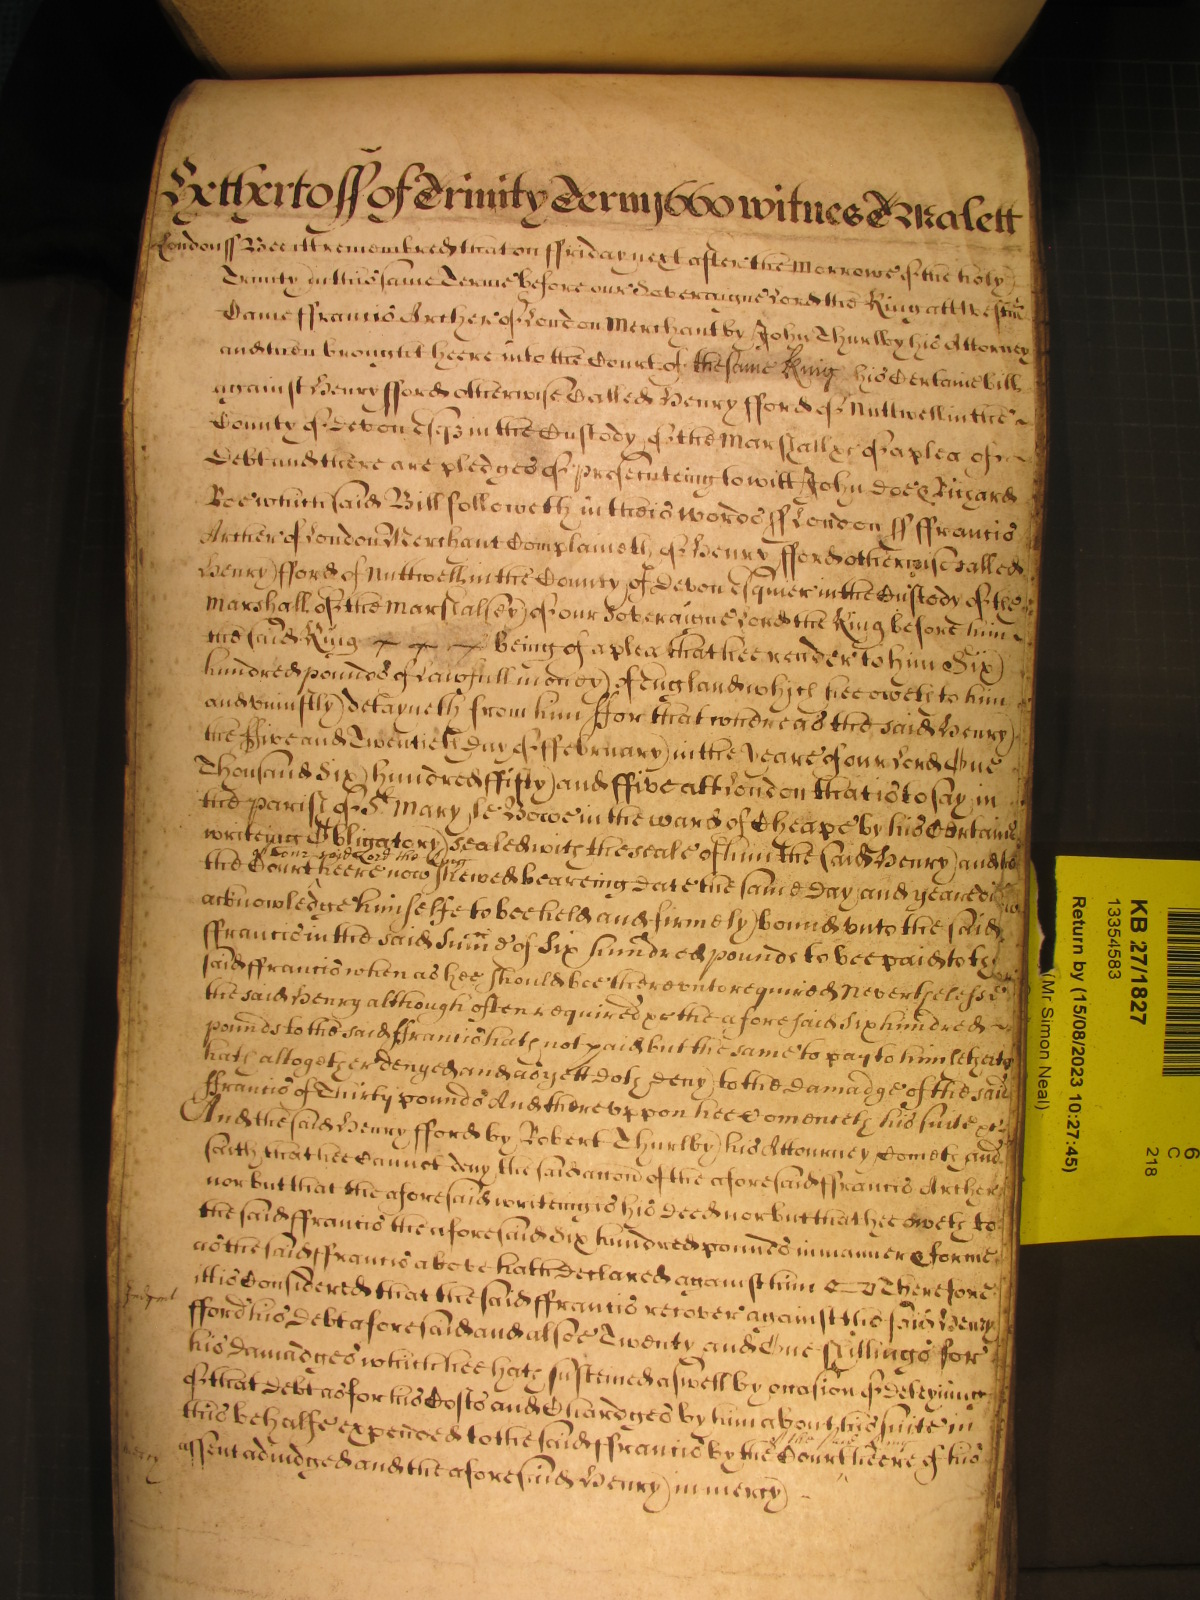 yet hertoff of Trinity Term 1660 witnes T Malett
London ss Bee itt remembred that on ffriday next after the Morrowe of the holy
Trinity in this same Terme before our Soveraigne Lord the King att Westmr
Came ffrancis Archer of London Merchant by John Thurlby his Attorney
and then brought heere into the Court of the same King his Certaine bill
against Henry fford otherwise Called Henry fford of Nuttwell in the
County of Devon esqr in the Custody of the Marshall &c of a plea of
Debt and there are pledges of prosecuteing to witt John Doe & Richard
Roe which said Bill followeth in theis words ss London ss ffrancis
Archer of London Merchant Complaineth of Henry fford otherwise Called
Henry fford of Nuttwell in the County of Devon esquier in the Custody of the
Marshall of the Marshalsey of our Soveraigne Lord the King before him
the said King being of a plea that hee render to him Six
hundred pounds of Lawfull money of England which hee oweth to him
and uniustly detayneth from him ffor that whereas the said Henry
the ffive and Twentieth Day of ffebruary in the Yeare of our Lord One
Thousand Six hundred ffifty and ffive att London that is to say in
the parish of St Mary le Bowe in the ward of Cheape by his Certaine
writeing Obligatory sealed with the seale of him the said Henry and to
of our said Lord the King
the Court heere now shewed beareing date the same day and yeare did
acknowledge himselfe to bee held and firmely bound unto the said
ffrancis in the said Summe of Six hundred pounds to bee paid to the
said ffrancis when as hee should bee thereunto required Neverthelesse
the said Henry although often required &c the aforesaid Six hundred
pounds to the said ffrancis hath not paid but the same to pay to him hitherto
hath altogether denyed and as yett doth deny to the damadge of the said
ffrancis of Thirty pounds And thereuppon hee bringeth his suite &c
And the said Henry fford by Robert Thurlby his Attourney Cometh and
saith that hee Cannot deny the said accon of the aforesaid ffrancis Archer
nor but that the aforesaid writeing is his Deed nor but that hee oweth to
the said ffrancis the aforesaid Six hundred pounds in manner & forme
as the said ffrancis above hath Declared against him Therefore
Judgmt
itt is Considered that the said ffrancis recover against the said Henry
fford his Debt aforesaid and alsoe Twenty and One shillings for
his damadges which hee hath susteined aswell by occasion of deteyning
of that Debt as for his Costs and Chardges by him about his suite in
this behalfe expended to the said ffrancis by the Court heere of his
of the said King
mercy
assent adiudged and the aforesaid Henry in mercy
KB 27/1827
13354583
Return by (15/08/2023 10:27:45)
(Mr Simon Neal)
6
C
218